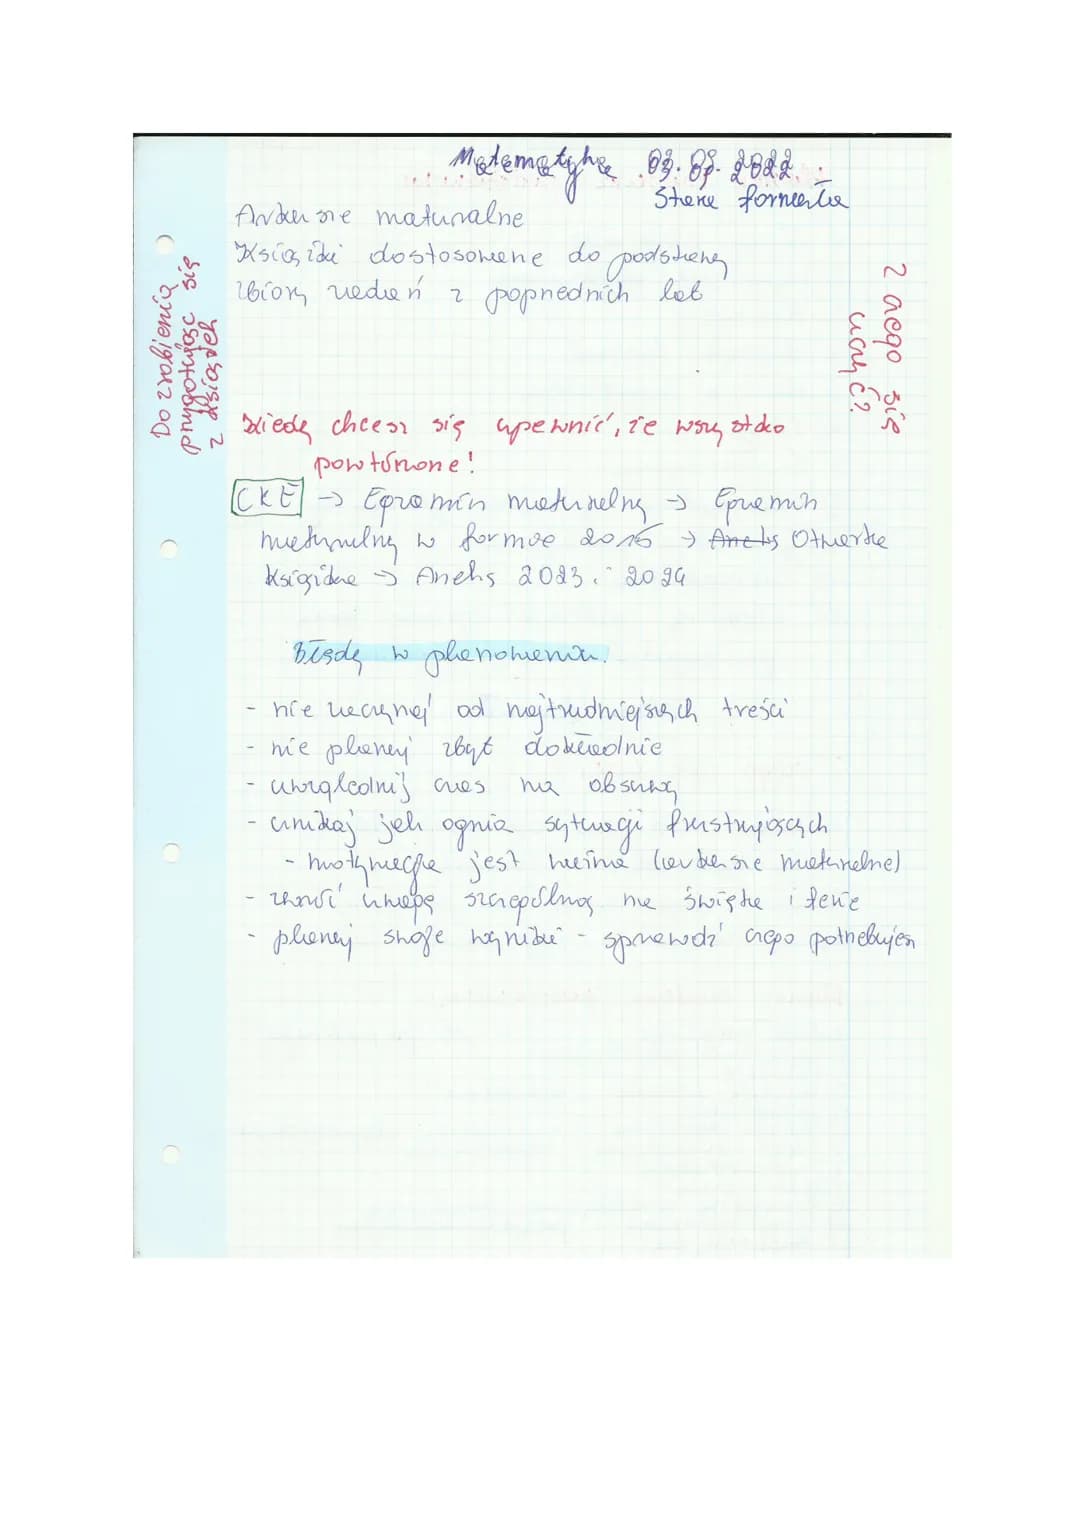 Matematyka 03.09.2022
Stara formuła
Arkusze maturalne
Książki dostosowane do podstawy
zbiory zadań z poprzednich lat
Z czego się
uczyć?
Do zrobienia
przygotując się
z książek
Kiedy chcesz się upewnić, że wszystko
powtórzone!
CKE → Egzamin maturalny → Egzamin
maturalny w formule 2015 → Aneks Otwarta
Książka → Aneks 2023 i 2024
Błędy w planowaniu.
- nie zaczynaj od najtrudniejszych treści
- nie planuj zbyt dokładnie
- uwzględnij czas na obsuwy
- unikaj jak ognia sytuacji frustrujących
- motywacja jest ważna (arkusze maturalne)
- zwróć uwagę szczególną na święta i ferie
- planuj swoje wyniki - sprawdź czego potrzebujesz